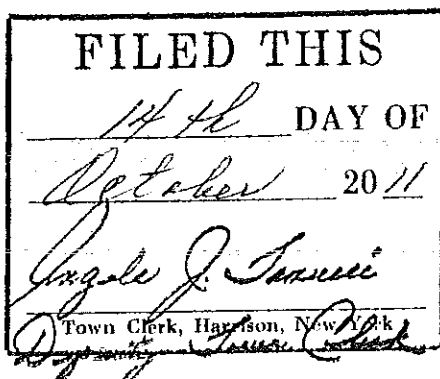 FILED THIS
14th DAY OF
October 2011
J.
Town Clerk, Harrison, New York
Deputy Town Clerk